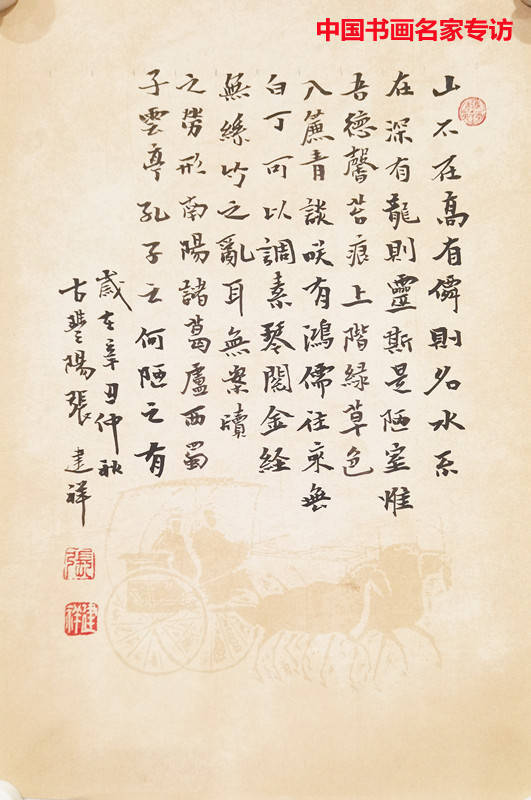 中国书画名家专访
山不在高有僊則名水不
在深有龍則靈斯是陋室惟
吾德馨苔痕上階緑草色
入簾青談咲有鴻儒往来無
白丁可以調素琴閲金经
無絲竹之亂耳無案牘
之勞形南陽諸葛廬西蜀
子雲亭孔子云何陋之有
歲在辛丑仲秋
古豐陽張建祥
張
建祥